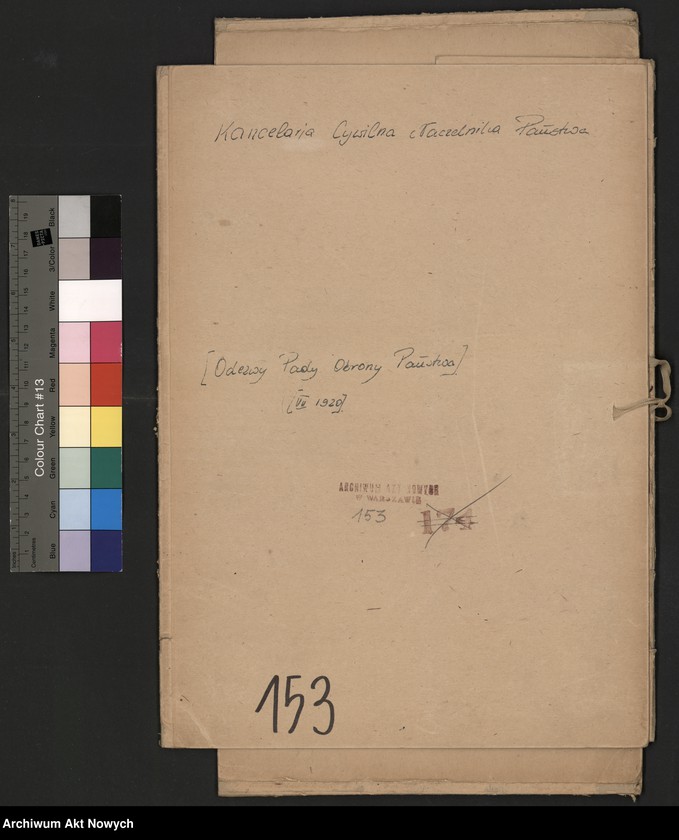 Kancelaria Cywilna Naczelnika Państwa
[Odezwy Rady Obrony Państwa]
[VII 1920]
ARCHIWUM AKT NOWYCH
153
174
153
Colour Chart #13
Black
3/Color
White
Magenta
Red
Yellow
Green
Cyan
Blue
Centimetres
Archiwum Akt Nowych